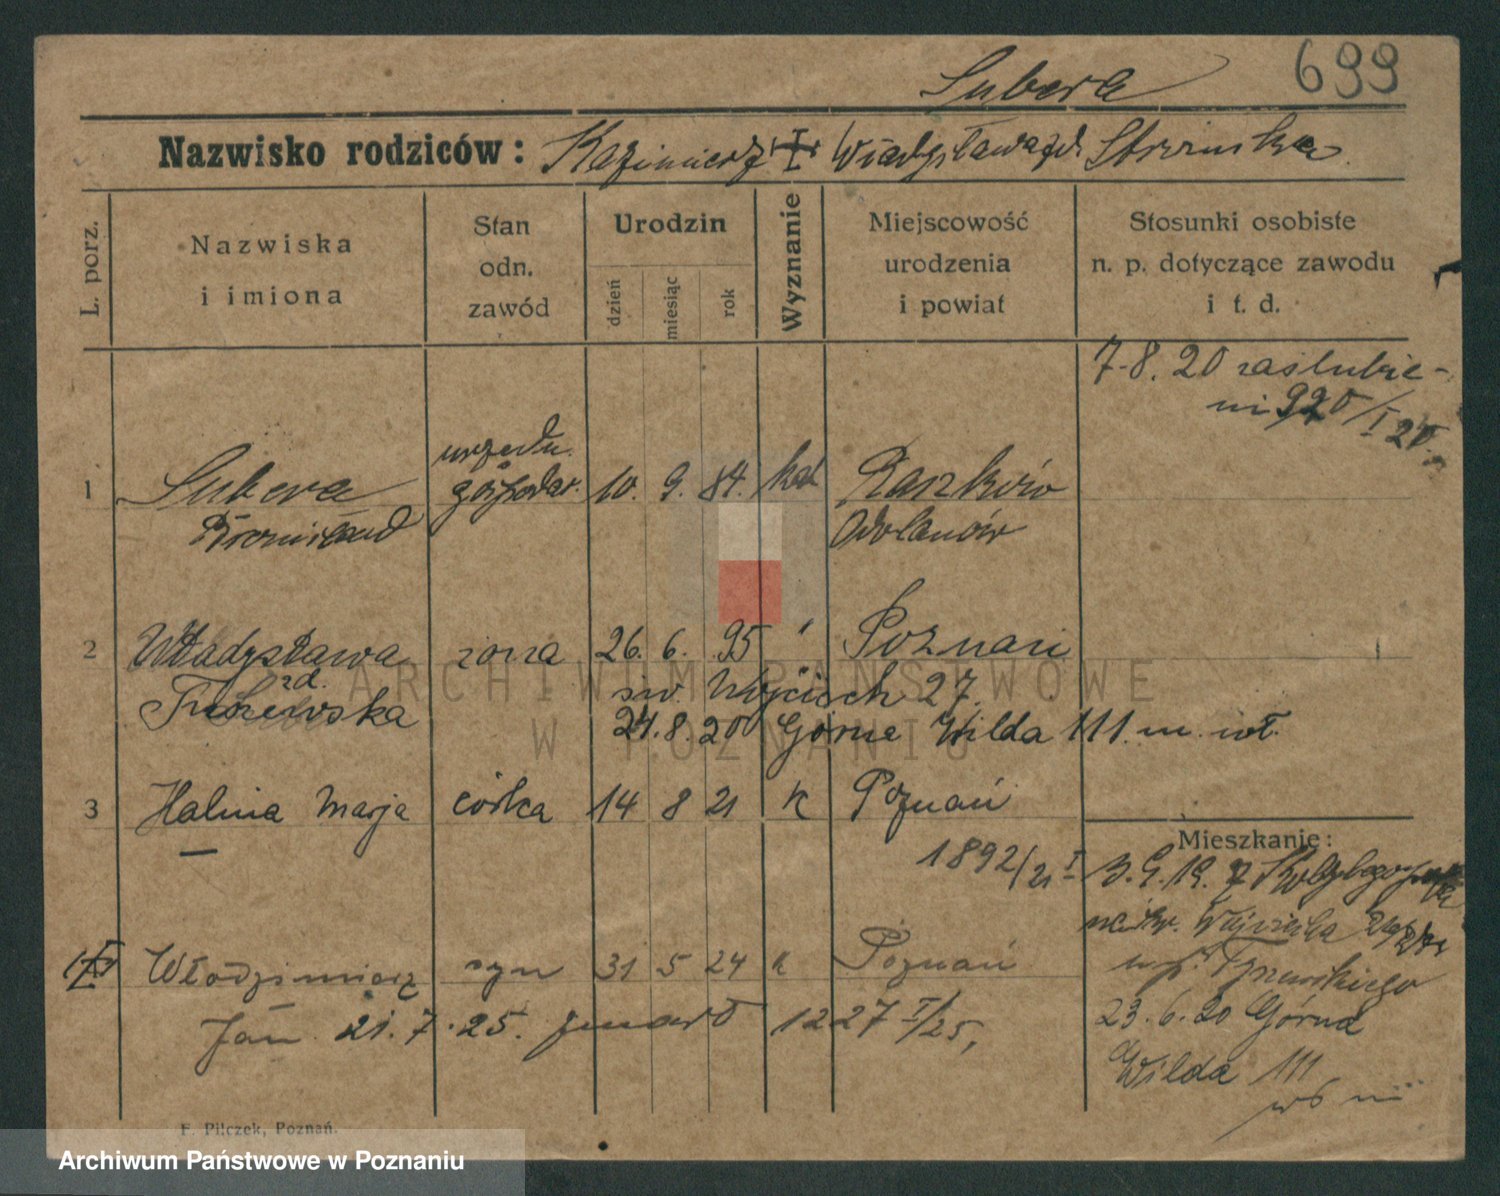 699
Subera
Nazwisko rodziców: Kazimierz + Władysława zd.
L. porz.
Nazwiska i imiona
Stan odn. zawód
Urodzin
dzień
miesiąc
rok
Wyznanie
Miejscowość urodzenia i powiat
Stosunki osobiste n. p. dotyczące zawodu i t. d.
7.8.20 zaślubie-
ni 920/I 20.
urzędn.
1 Subera gospodar. 10. 9. 84. kat Raszków
Bronisław Odolanów
2 Władysława żona 26. 6. 95 " Poznań
zd. św. Wojciech 27.
24.8.20 Górna Wilda 111. m. wł.
3 Halina Marja córka 14 8 21 K Poznań
1892/21 I
Mieszkanie:
3.9.19.
św. Wojciecha
23.6.20 Górna
Wilda 111
Włodzimierz syn 31 5 24 k Poznań
Jan 21.7.25. zmarł 1227 I/25,
F. Pilczek, Poznań.
ARCHIWUM PAŃSTWOWE
W POZNANIU
Archiwum Państwowe w Poznaniu